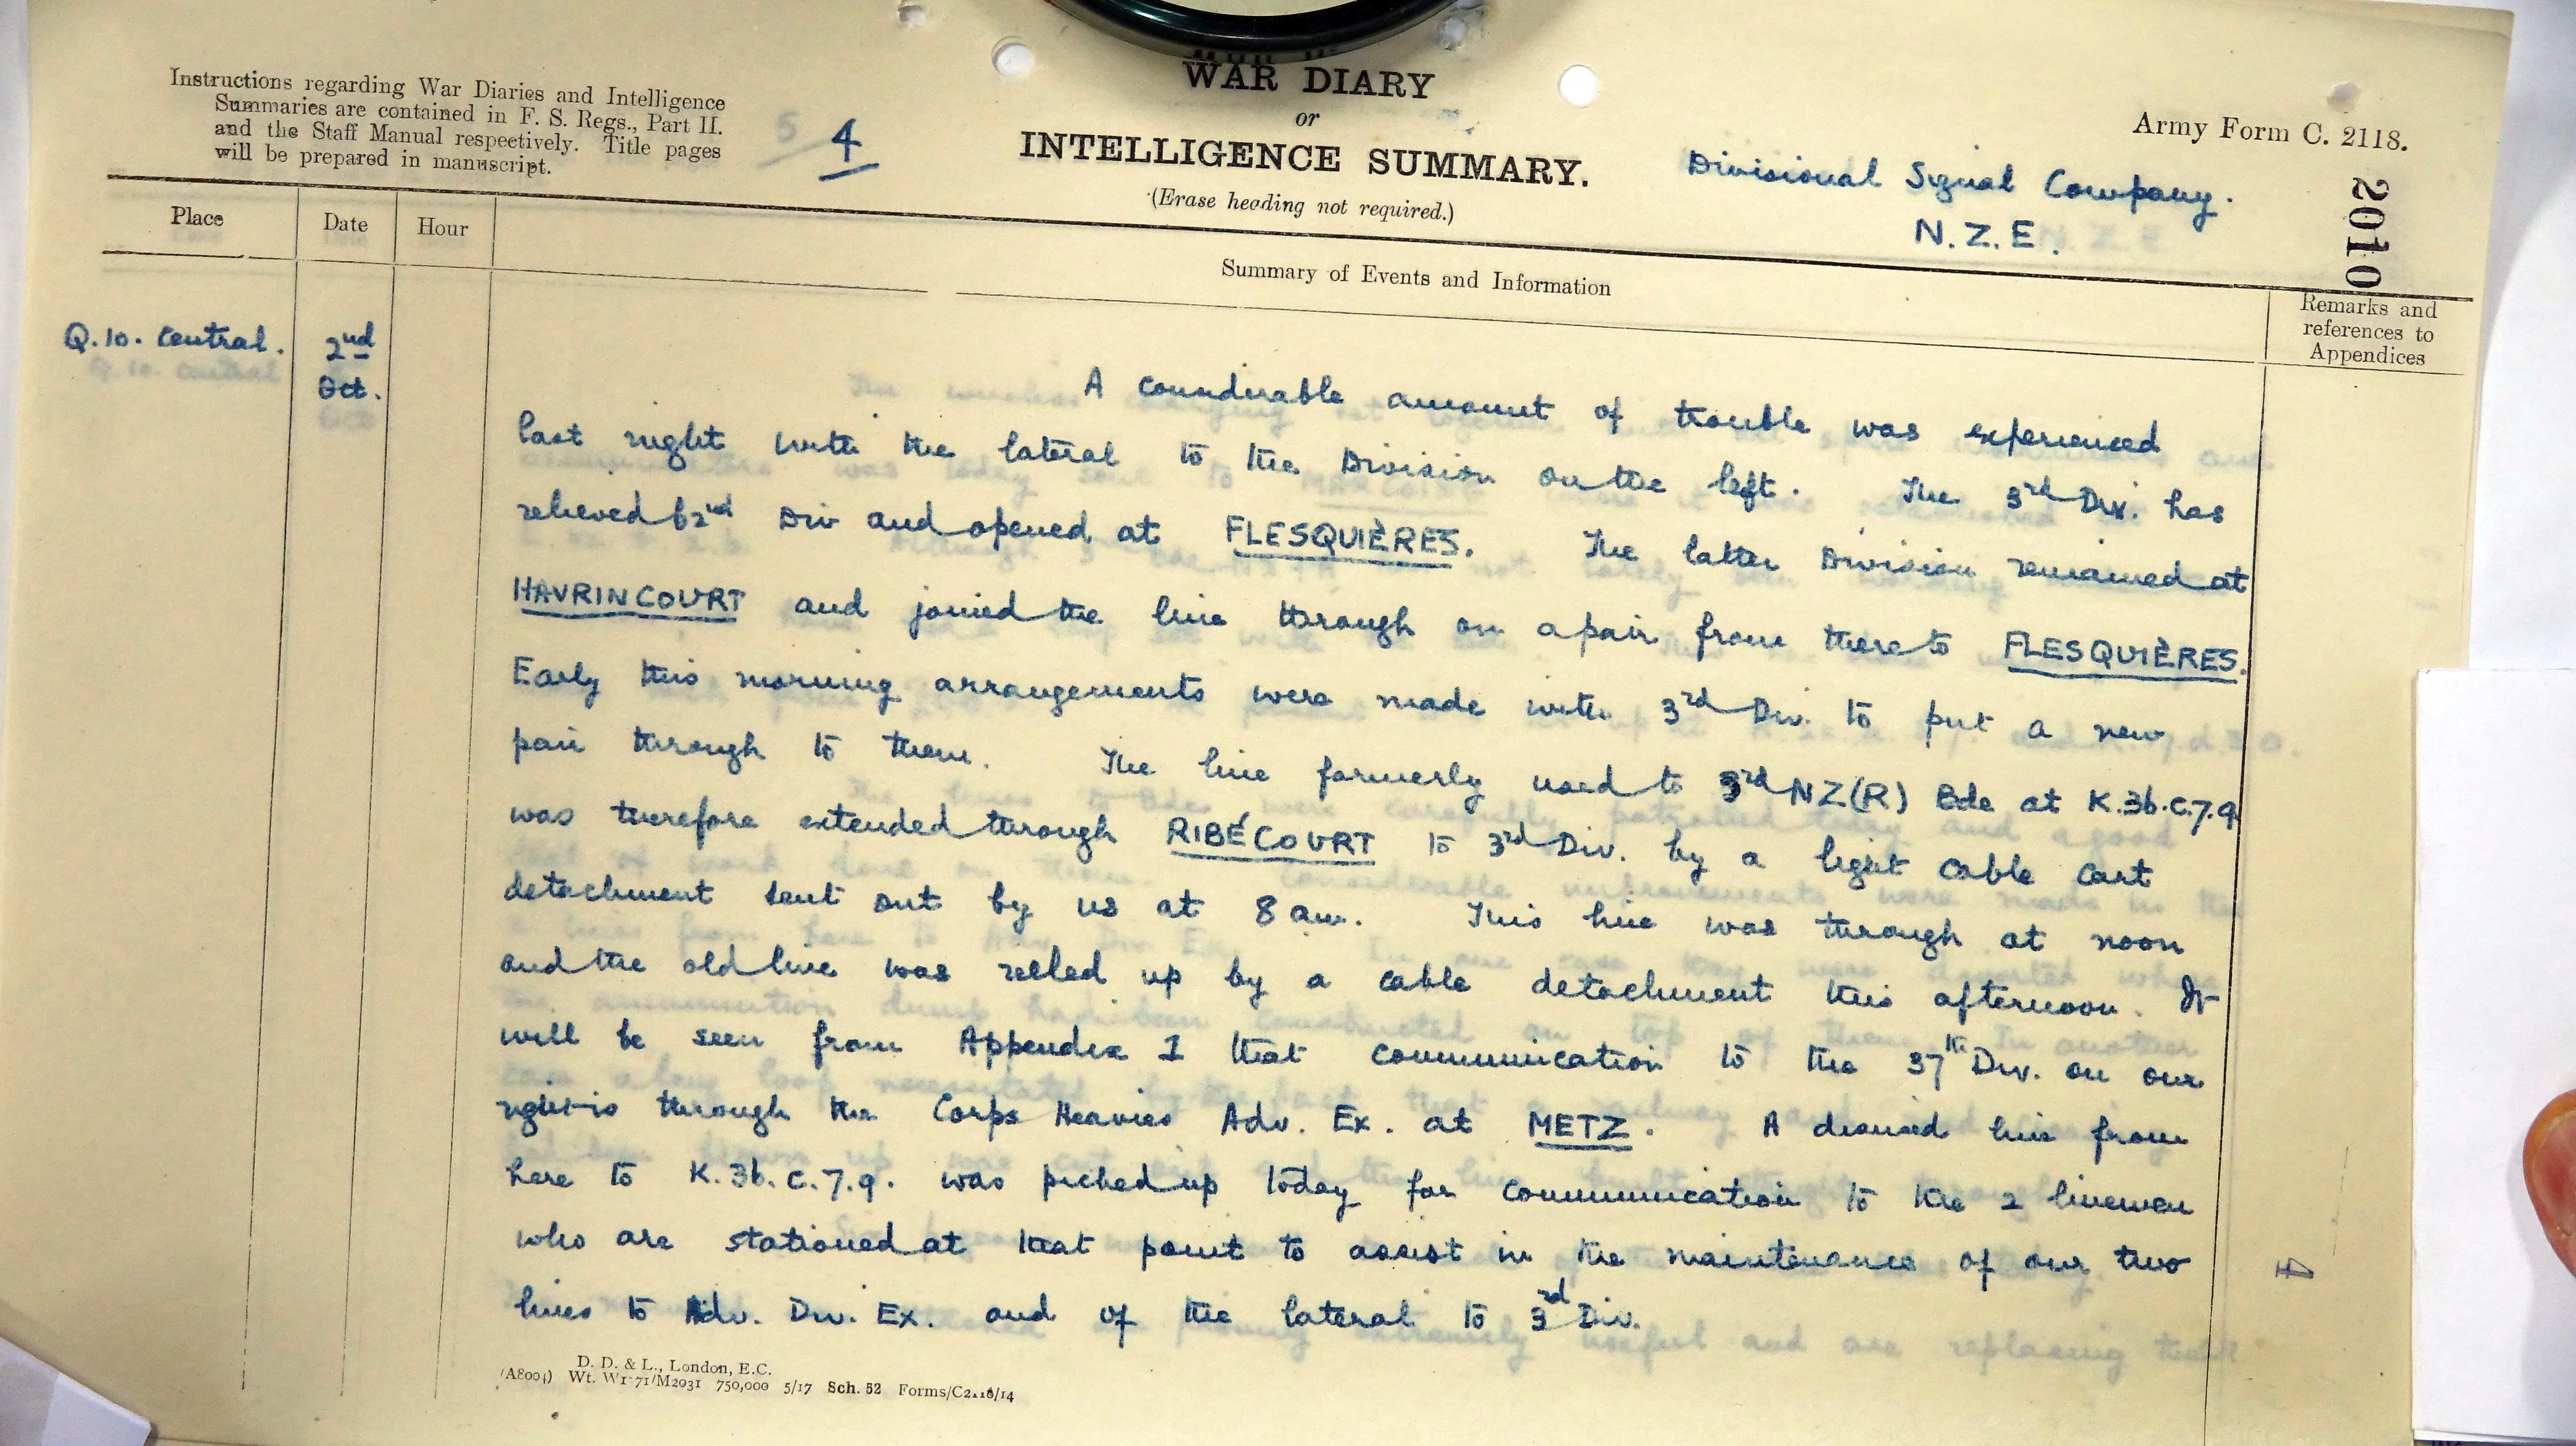 WAR DIARY
or
INTELLIGENCE SUMMARY.
(Erase heading not required.)
Instructions regarding War Diaries and Intelligence
Summaries are contained in F. S. Regs., Part II.
and the Staff Manual respectively. Title pages
will be prepared in manuscript.
5 4
Army Form C. 2118.
Divisional Signal Company.
N.Z.E.
2010
Place Date Hour
Summary of Events and Information
Remarks and
references to
Appendices
Q.10. Central. 2nd
Oct.
A considerable amount of trouble was experienced
last night with the lateral to the Division on the left. The 3rd Div. has
relieved 62nd Div and opened at FLESQUIÈRES. The latter Division remained at
HAVRINCOURT and joined the line through on a pair from there to FLESQUIÈRES.
Early this morning arrangements were made with 3rd Div. to put a new
pair through to them. The line formerly used to 3rd NZ(R) Bde at K.36.c.7.9
was therefore extended through RIBÉCOURT to 3rd Div. by a light cable cart
detachment sent out by us at 8 am. This line was through at noon
and the old line was reeled up by a cable detachment this afternoon. It
will be seen from Appendix 1 that communication to the 37th Div. on our
right is through the Corps Heavies Adv. Ex. at METZ. A disused line from
here to K.36.c.7.9. was picked up today for communication to the 2 linemen
who are stationed at that point to assist in the maintenance of our two
lines to Adv. Div. Ex. and of the lateral to 3rd Div.
4
D. D. & L., London, E.C.
(A8004) Wt. W1771/M2031 750,000 5/17 Sch. 52 Forms/C2118/14